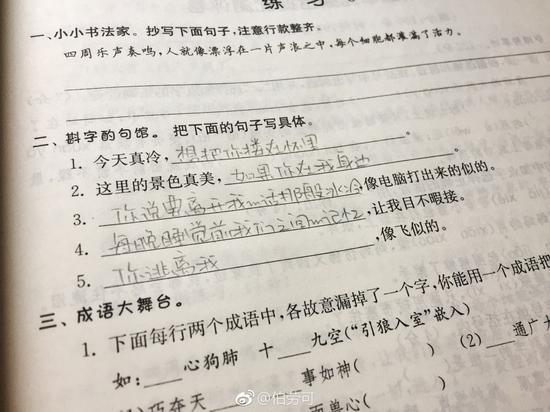 练 习
一、小小书法家。抄写下面句子,注意行款整齐。
四周乐声奏鸣,人就像漂浮在一片声浪之中,每个细胞都灌满了活力。
二、斟字酌句馆。把下面的句子写具体。
1. 今天真冷,想把你搂在怀里。
2. 这里的景色真美,如果你在我身边。
3. 你说要离开我的话那般冰冷,像电脑打出来的似的。
4. 每晚睡觉前我们之间的记忆,让我目不暇接。
5. 你逃离我,像飞似的。
三、成语大舞台。
1. 下面每行两个成语中,各故意漏掉了一个字,你能用一个成语把
如:___心狗肺 十___九空(“引狼入室”嵌入)
(2) ___通广大
巧夺天___ ___事如神( )
面兽心( )
@伯劳可